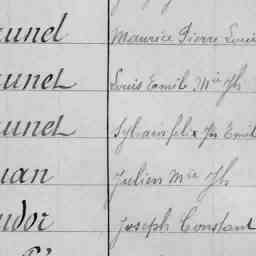 unel Maurice Pierre Louis
unel Louis Emile Mie Jh
unel Sylvain felix Jn Emil
uan Julien Mie Jh
udor Joseph Constant